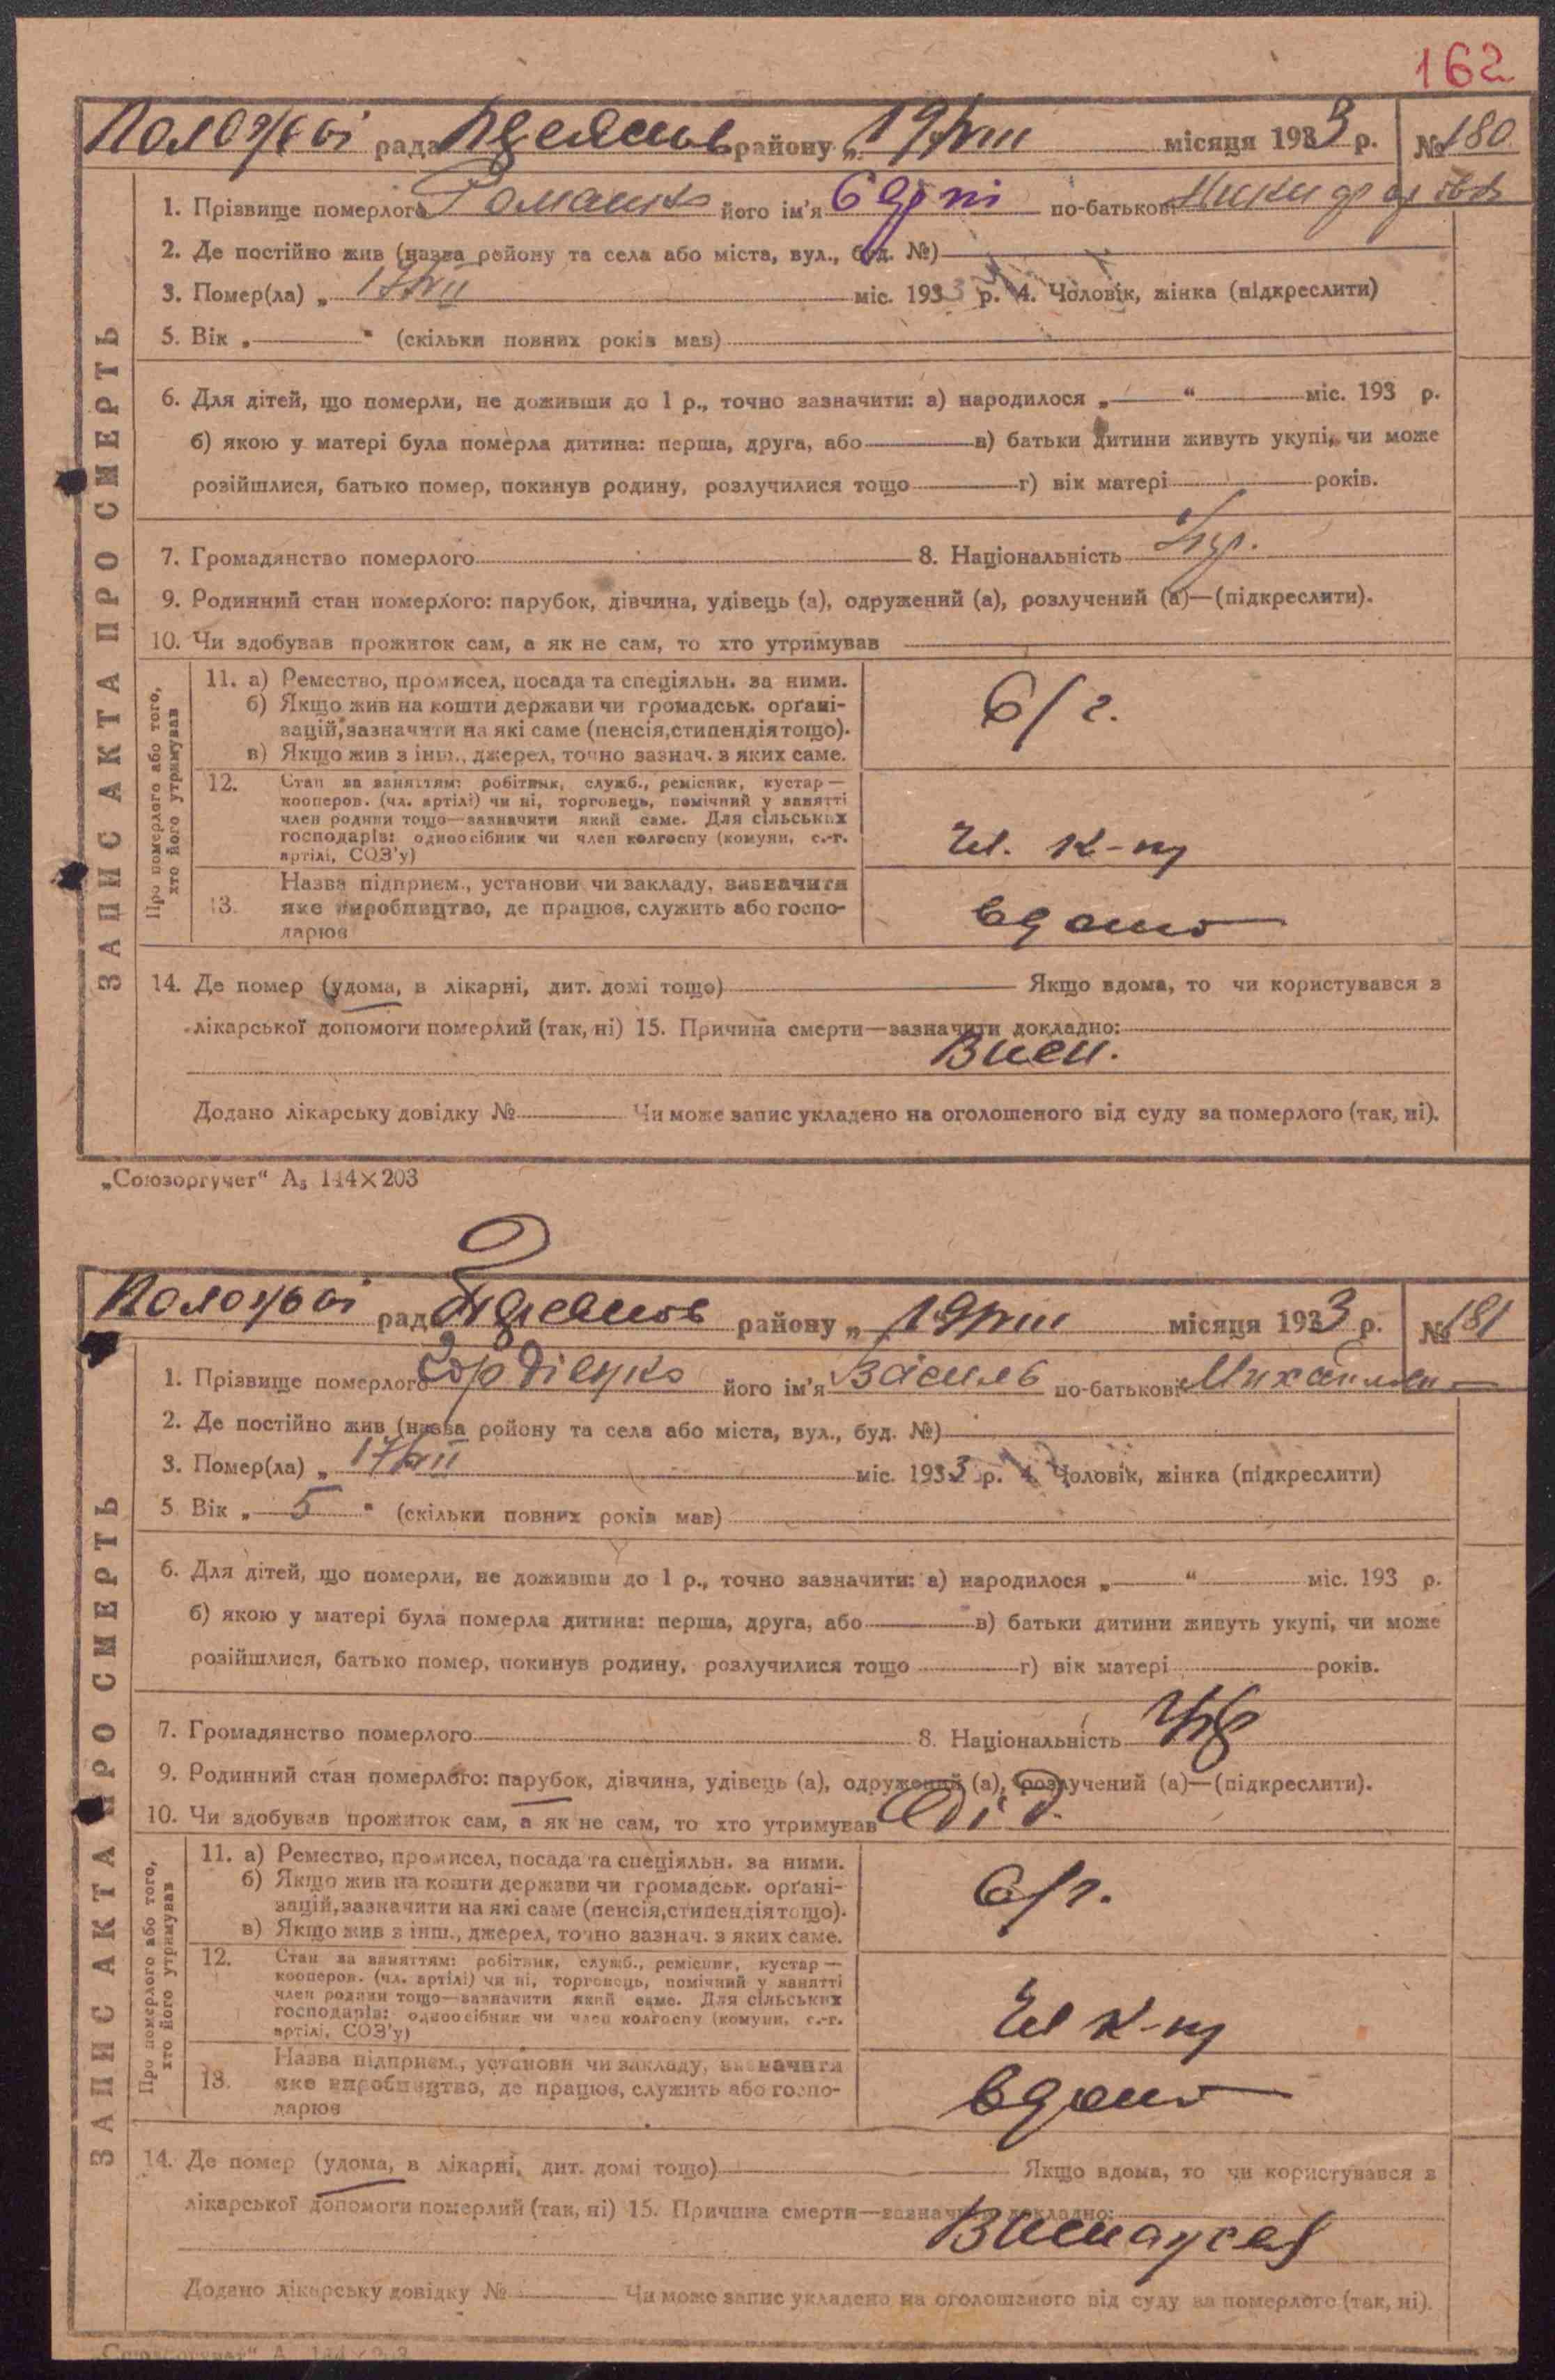 162
рада району „ 19/VIII місяця 1933 р. № 180
1. Прізвище померлого Романко його ім'я по-батькові
2. Де постійно жив (назва району та села або міста, вул., буд. №)
3. Помер(ла) „ 17/VIII міс. 1933 р. 4. Чоловік, жінка (підкреслити)
5. Вік „ “ (скільки повних років мав)
6. Для дітей, що померли, не доживши до 1 р., точно зазначити: а) народилося „ “ міс. 193 р.
б) якою у матері була померла дитина: перша, друга, або в) батьки дитини живуть укупі, чи може
розійшлися, батько помер, покинув родину, розлучилися тощо г) вік матері років.
7. Громадянство померлого 8. Національність Укр.
9. Родинний стан померлого: парубок, дівчина, удівець (а), одружений (а), розлучений (а)—(підкреслити).
10. Чи здобував прожиток сам, а як не сам, то хто утримував
ЗАПИС АКТА ПРО СМЕРТЬ
Про померлого або того,
хто його утримував
11. а) Ремество, промисел, посада та спеціяльн. за ними.
б) Якщо жив на кошти держави чи громадськ. орґані-
зацій, зазначити на які саме (пенсія, стипендія тощо).
в) Якщо жив з інш., джерел, точно зазнач. з яких саме.
б/г.
12. Стан за заняттям: робітник, служб., ремісник, кустар—
кооперов. (чл. артілі) чи ні, торговець, помічний у занятті
член родини тощо—зазначити який саме. Для сільських
господарів: одноосібник чи член колгоспу (комуни, с.-г.
артілі, СОЗ'у)
Чл. к-п
13. Назва підприєм., установи чи закладу, зазначити
яке виробництво, де працює, служить або госпо-
дарює
вдома
14. Де помер (удома, в лікарні, дит. домі тощо) Якщо вдома, то чи користувався з
лікарської допомоги померлий (так, ні) 15. Причина смерти—зазначити докладно:
Висн.
Додано лікарську довідку № Чи може запис укладено на оголошеного від суду за померлого (так, ні).
„Союзоргучет“ А₅ 144×203
рада району „ 19/VIII місяця 1933 р. № 181
1. Прізвище померлого Гордієнко його ім'я Василь по-батькові
2. Де постійно жив (назва району та села або міста, вул., буд. №)
3. Помер(ла) „ 17/VIII міс. 1933 р. 4. Чоловік, жінка (підкреслити)
5. Вік „ 5 “ (скільки повних років мав)
6. Для дітей, що померли, не доживши до 1 р., точно зазначити: а) народилося „ “ міс. 193 р.
б) якою у матері була померла дитина: перша, друга, або в) батьки дитини живуть укупі, чи може
розійшлися, батько помер, покинув родину, розлучилися тощо г) вік матері років.
7. Громадянство померлого 8. Національність Укр
9. Родинний стан померлого: парубок, дівчина, удівець (а), одружений (а), розлучений (а)—(підкреслити).
10. Чи здобував прожиток сам, а як не сам, то хто утримував дід
ЗАПИС АКТА ПРО СМЕРТЬ
Про померлого або того,
хто його утримував
11. а) Ремество, промисел, посада та спеціяльн. за ними.
б) Якщо жив на кошти держави чи громадськ. орґані-
зацій, зазначити на які саме (пенсія, стипендія тощо).
в) Якщо жив з інш., джерел, точно зазнач. з яких саме.
б/г.
12. Стан за заняттям: робітник, служб., ремісник, кустар—
кооперов. (чл. артілі) чи ні, торговець, помічний у занятті
член родини тощо—зазначити який саме. Для сільських
господарів: одноосібник чи член колгоспу (комуни, с.-г.
артілі, СОЗ'у)
Чл к-п
13. Назва підприєм., установи чи закладу, зазначити
яке виробництво, де працює, служить або госпо-
дарює
вдома
14. Де помер (удома, в лікарні, дит. домі тощо) Якщо вдома, то чи користувався з
лікарської допомоги померлий (так, ні) 15. Причина смерти—зазначити докладно:
Додано лікарську довідку № Чи може запис укладено на оголошеного від суду за померлого (так, ні).
„Союзоргучет“ А 144×203